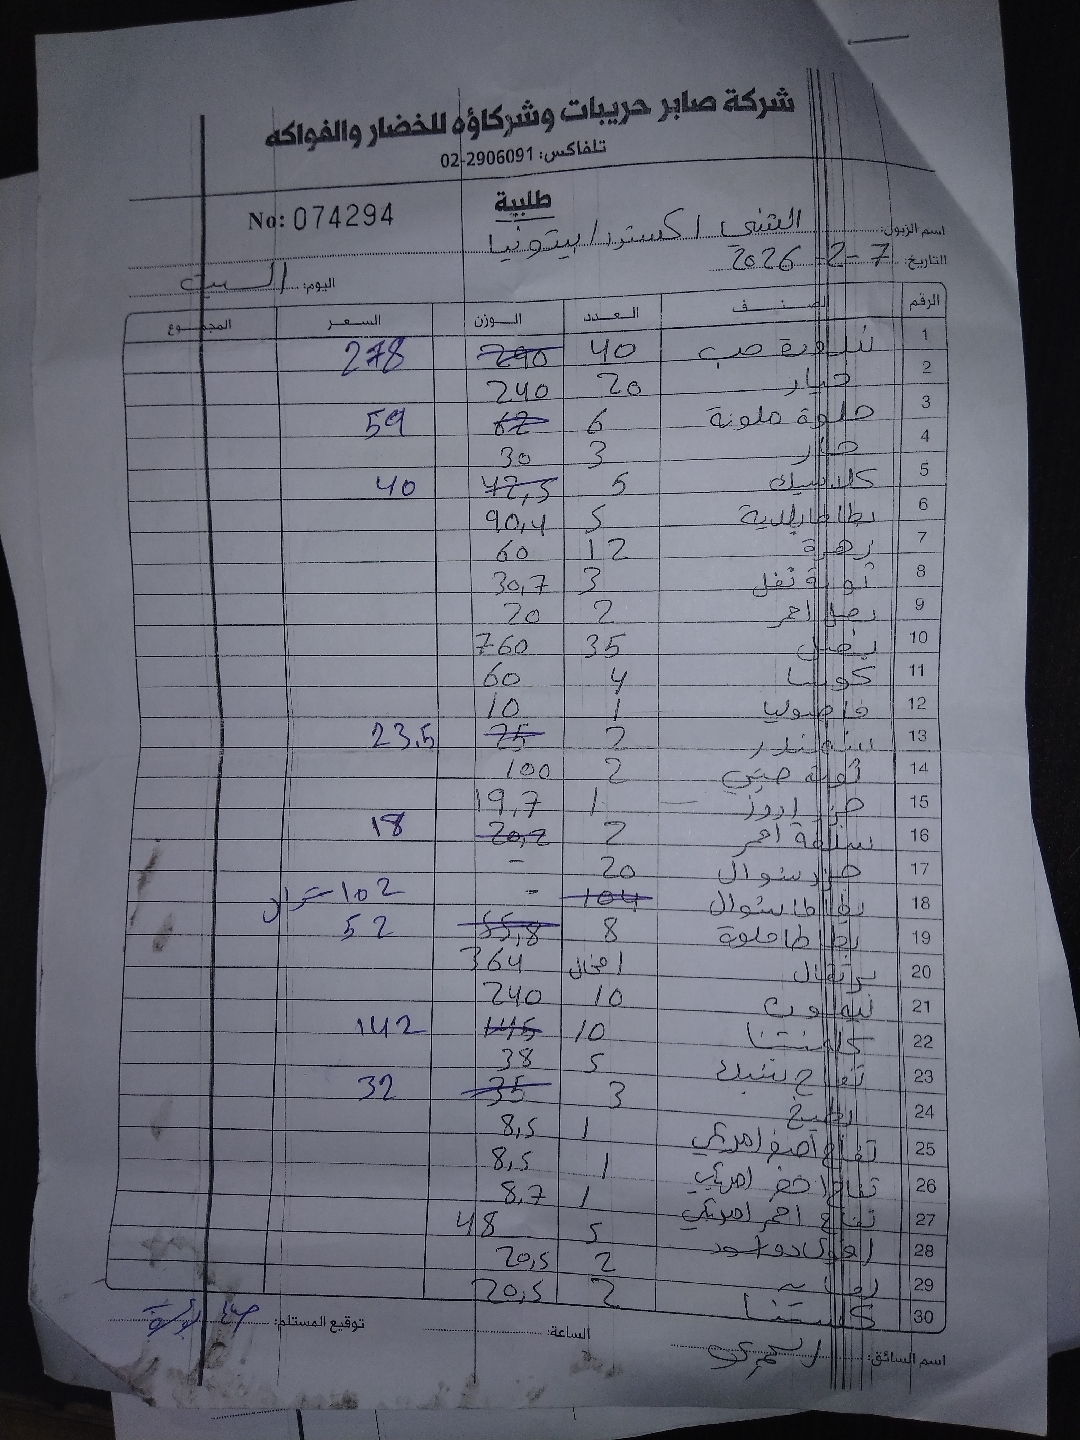 شركة صابر حريبات وشركاؤه للخضار والفواكه
تلفاكس: 02-2906091
طلبية
No: 074294
اسم الزبون: الثنى اكسترا / بيتونيا
التاريخ: 7-2-2026
اليوم: السبت
الرقم الصنف العدد الوزن السعر المجموع
1 بندورة حب 40 290 278
2 خيار 20 240
3 حلوة ملونة 6 62 59
4 حار 3 30
5 كلاسيك 5 42,5 40
6 بطاطا بلدية 5 90,4
7 زهرة 12 60
8 ثومة تفل 3 30,7
9 بصل احمر 2 20
10 بصل 35 760
11 كوسا 4 60
12 فاصوليا 1 10
13 شمندر 2 25 23.5
14 ثومة صيني 2 100
15 جزر 1 19,7
16 احمر 2 20,2 18
17 جزر شوال 20 -
18 بطاطا شوال 104 - 102
19 بطاطا حلوة 8 55,8 52
20 برتقال 364
21 ليمون 10 240
22 كلمنتينا 10 145 142
23 تفاح 5 38
24 بطيخ 3 35 32
25 تفاح اصفر امريكي 1 8,5
26 تفاح اخضر امريكي 1 8,5
27 تفاح احمر امريكي 1 8,7
28 افوكادو اسود 5 48
29 2 20,5
30 كستنا 2 20,5
اسم السائق:
الساعة:
توقيع المستلم: